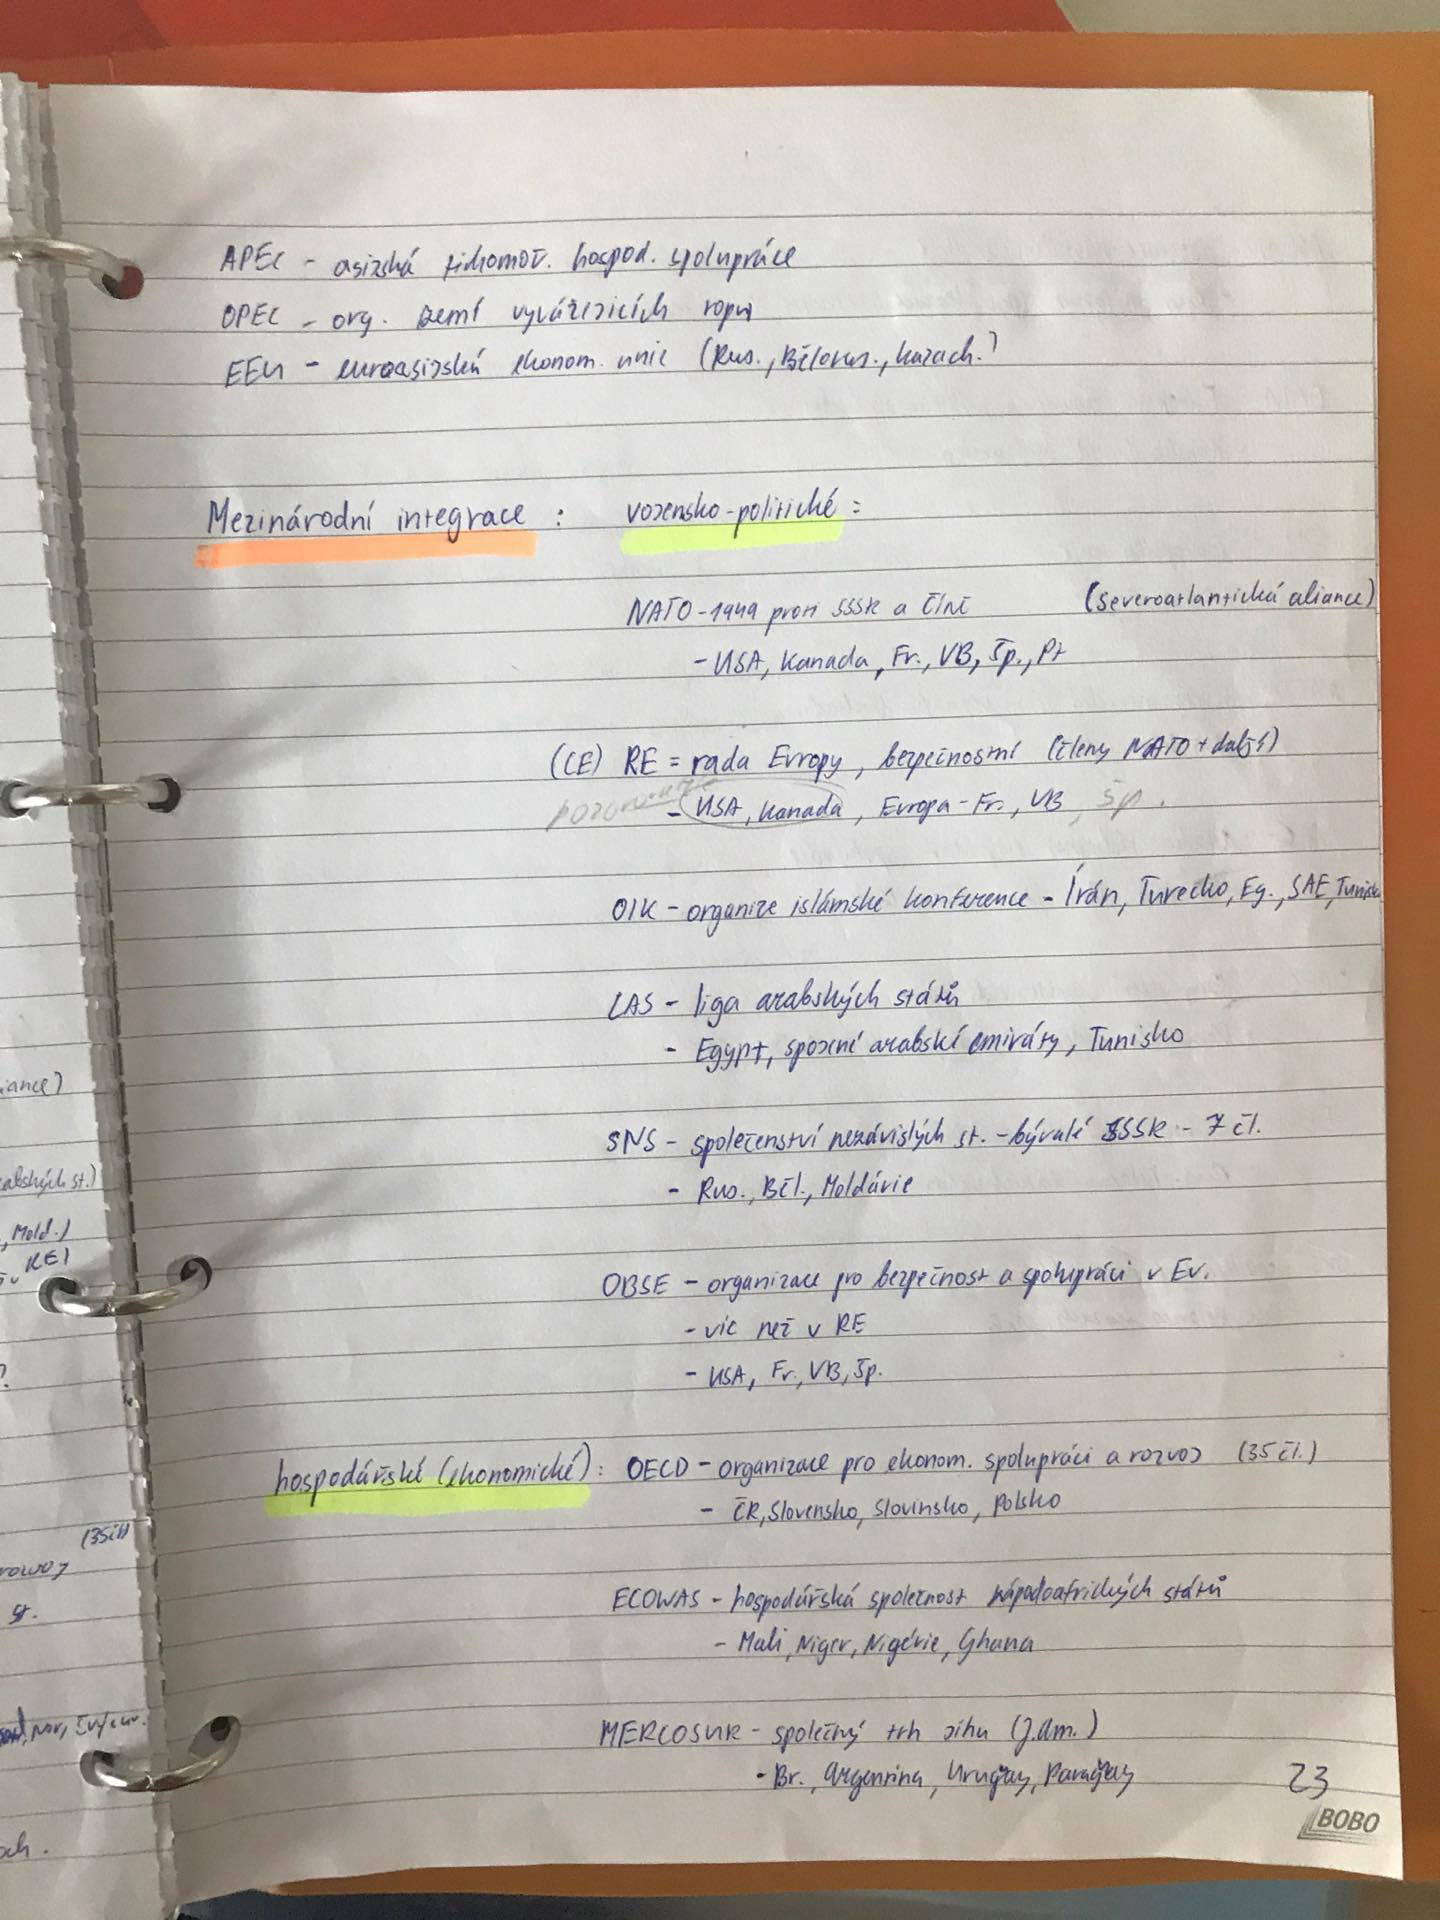 APEC - asijská tichomoř. hospod. spolupráce
OPEC - org. zemí vyvážejících ropu
EEU - euroasijská ekonom. unie (Rus., Bělorus., Kazach.)
Mezinárodní integrace : vojensko-politické :
NATO - 1949 proti SSSR a Číně (severoatlantická aliance)
- USA, Kanada, Fr., VB, Šp., Pt
(CE) RE = rada Evropy, bezpečnostní (členy NATO + další)
- USA, Kanada, Evropa - Fr., VB, Šp.
OIK - organize islámské konference - Írán, Turecko, Eg., SAE, Tunisko
LAS - liga arabských států
- Egypt, spojené arabské emiráty, Tunisko
SNS - společenství nezávislých st. - bývalé SSSR - 7 čl.
- Rus., Běl., Moldávie
OBSE - organizace pro bezpečnost a spolupráci v Ev.
- víc než v RE
- USA, Fr., VB, Šp.
hospodářské (ekonomické) : OECD - organizace pro ekonom. spolupráci a rozvoj (35 čl.)
- ČR, Slovensko, Slovinsko, Polsko
ECOWAS - hospodářská společnost západoafrických států
- Mali, Niger, Nigérie, Ghana
MERCOSUR - společný trh jihu (J.Am.)
- Br., Argentina, Uruguay, Paraguay
23
BOBO
iance)
abských st.)
, Mold.)
v RE)
st.